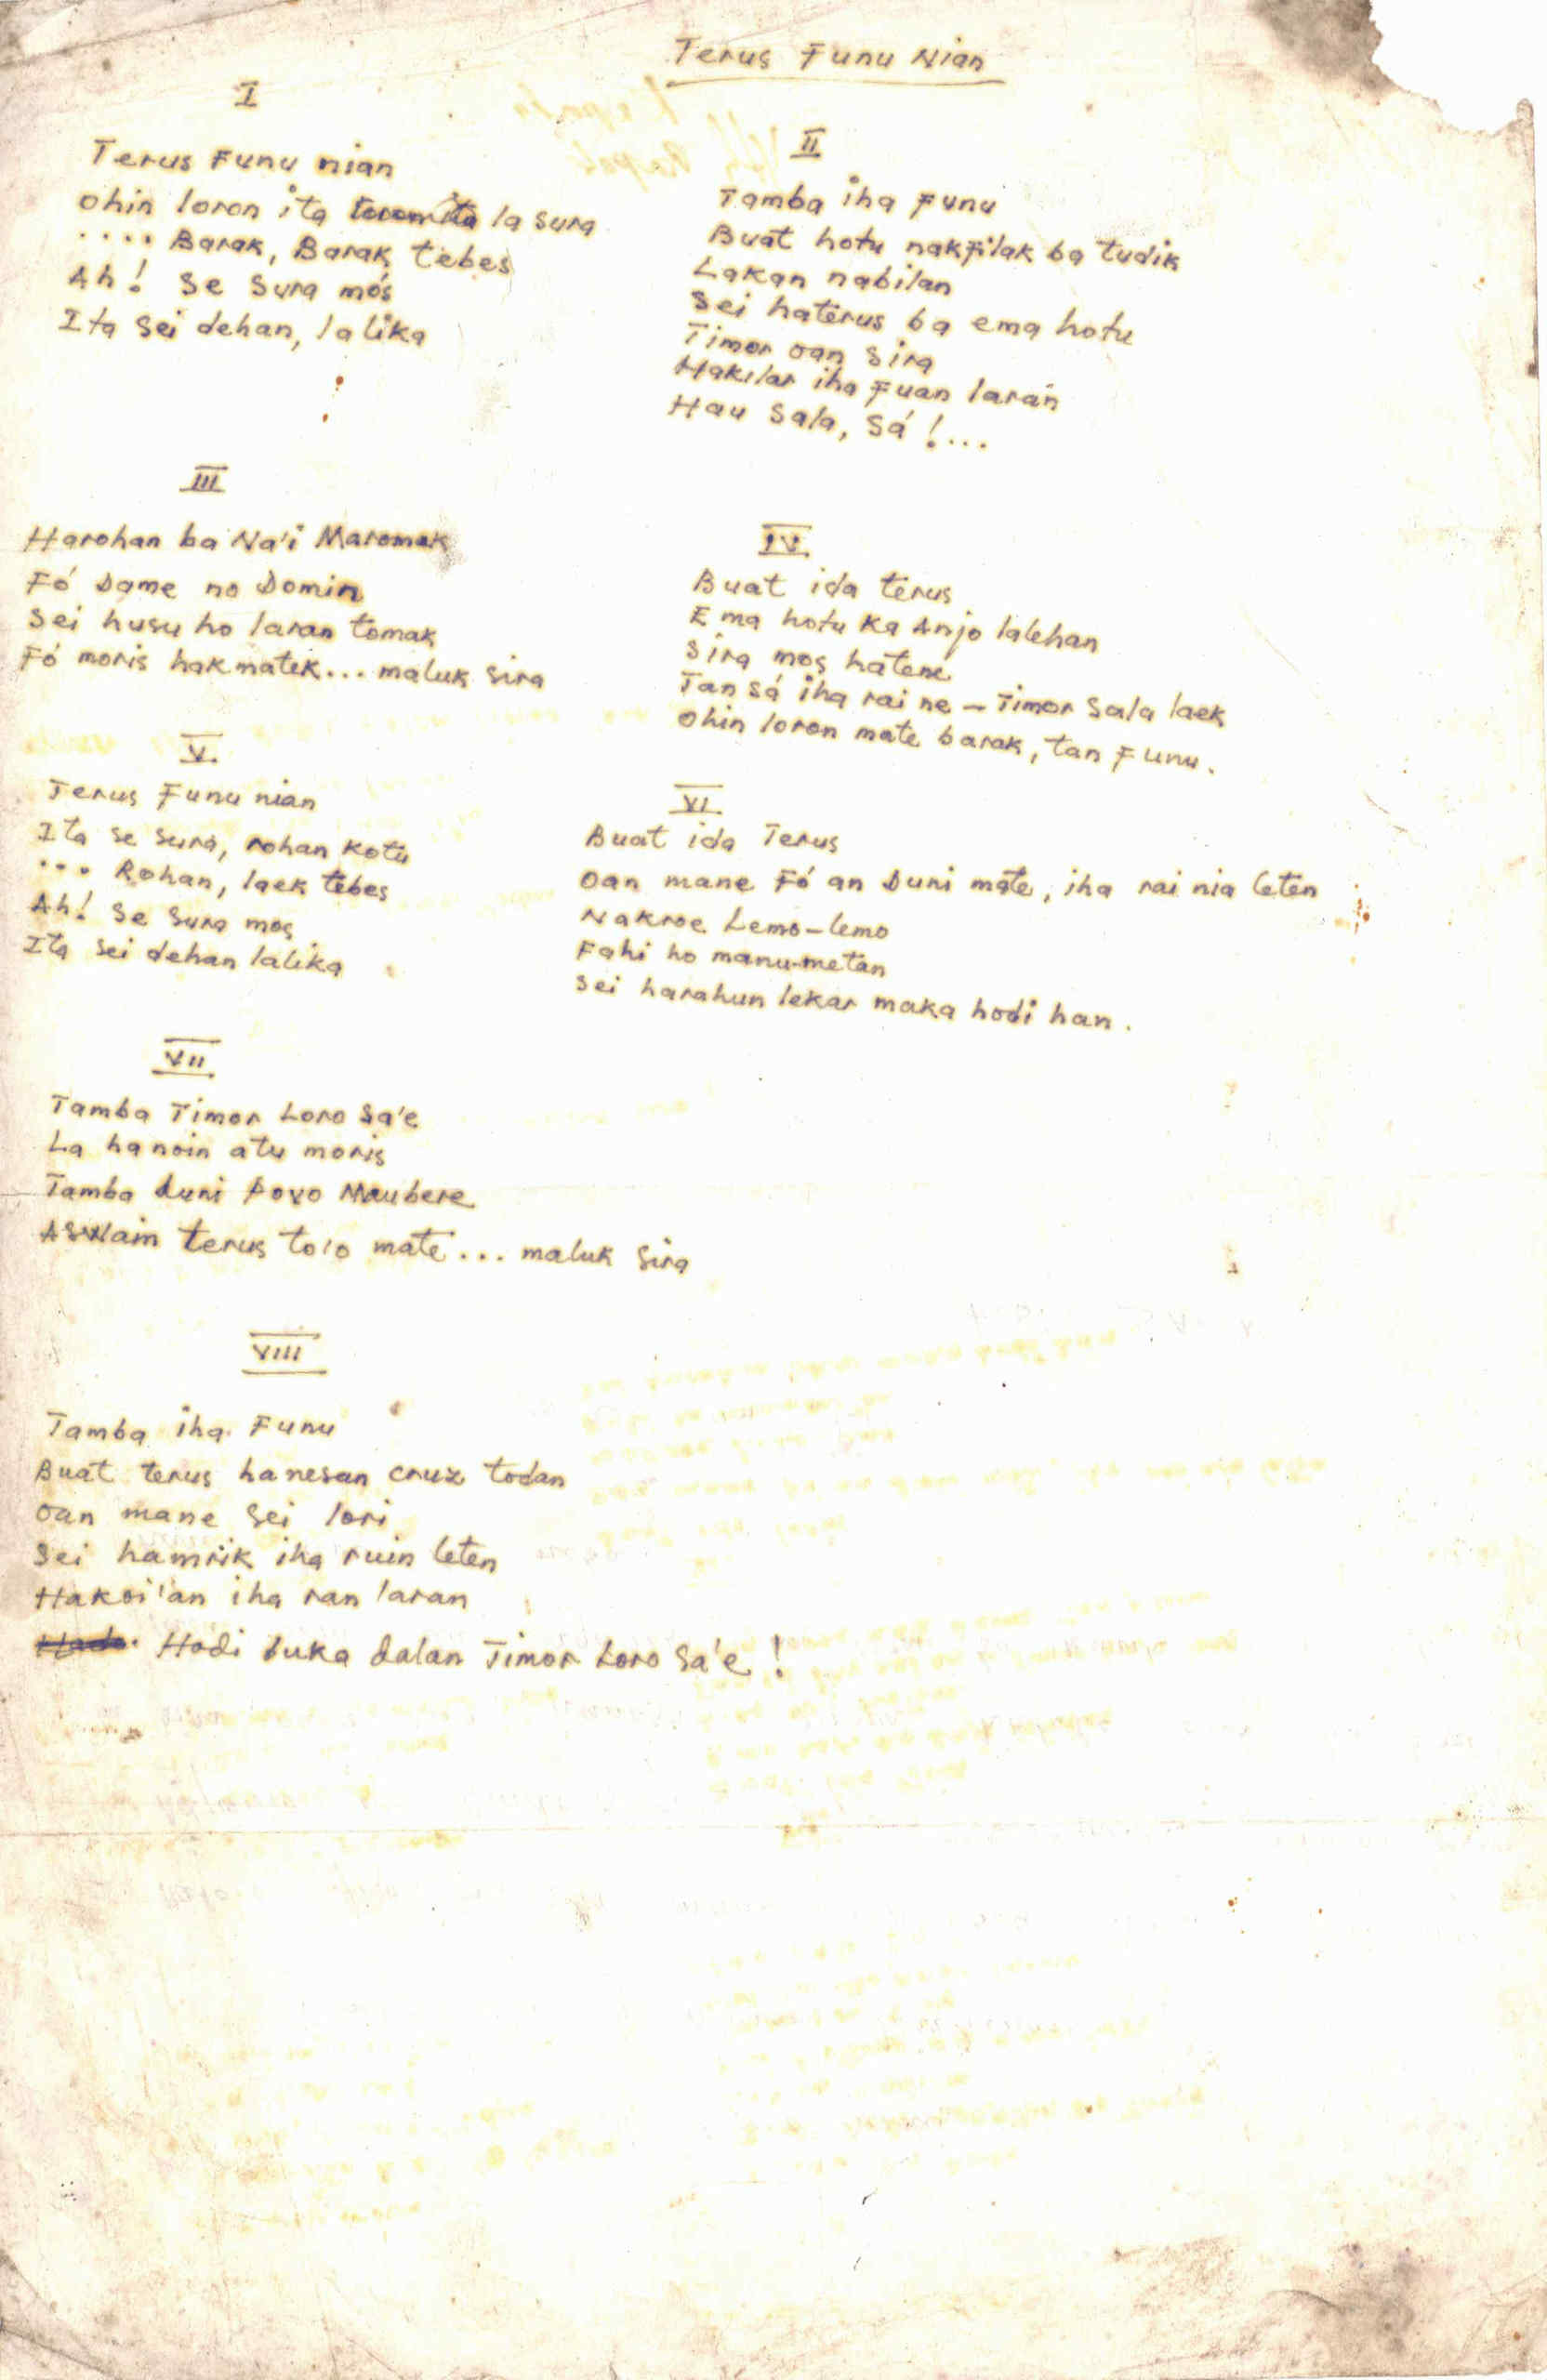 Terus Funu Nian
I
Terus Funu nian
Ohin loron ita la sura
.... Barak, Barak tebes
Ah! Se Sura mós
Ita Sei dehan, lalika
II
Tamba iha Funu
Buat hotu nakfilak ba tudik
Lakan nabilan
Sei haterus ba ema hotu
Timor oan Sira
Hakilar iha Fuan laran
Hau Sala, Sá!...
III
Harohan ba Na'i Maromak
Fó Dame no Domin
Sei husu ho laran tomak
Fó moris hakmatek... maluk Sira
IV
Buat ida terus
Ema hotu ka Anjo lalehan
Sira mos hatene
Tan sá iha rai ne - Timor Sala laek
Ohin loron mate barak, tan Funu.
V
Terus Funu nian
Ita se sura, rohan kotu
... Rohan, laek tebes
Ah! Se Sura mos
Ita sei dehan lalika
VI
Buat ida Terus
Oan mane Fó an Duni mate, iha rai nia leten
Nakroe Lemo-lemo
Fahi ho manu-metan
Sei harahun lekar maka hodi han.
VII
Tamba Timor Loro Sa'e
La hanoin atu moris
Tamba duni Povo Maubere
Aswain terus to'o mate... maluk Sira
VIII
Tamba iha Funu
Buat terus hanesan cruz todan
Oan mane Sei lori
Sei hamrik iha ruin leten
Hakoi'an iha ran laran
Hodi buka dalan Timor Loro Sa'e!